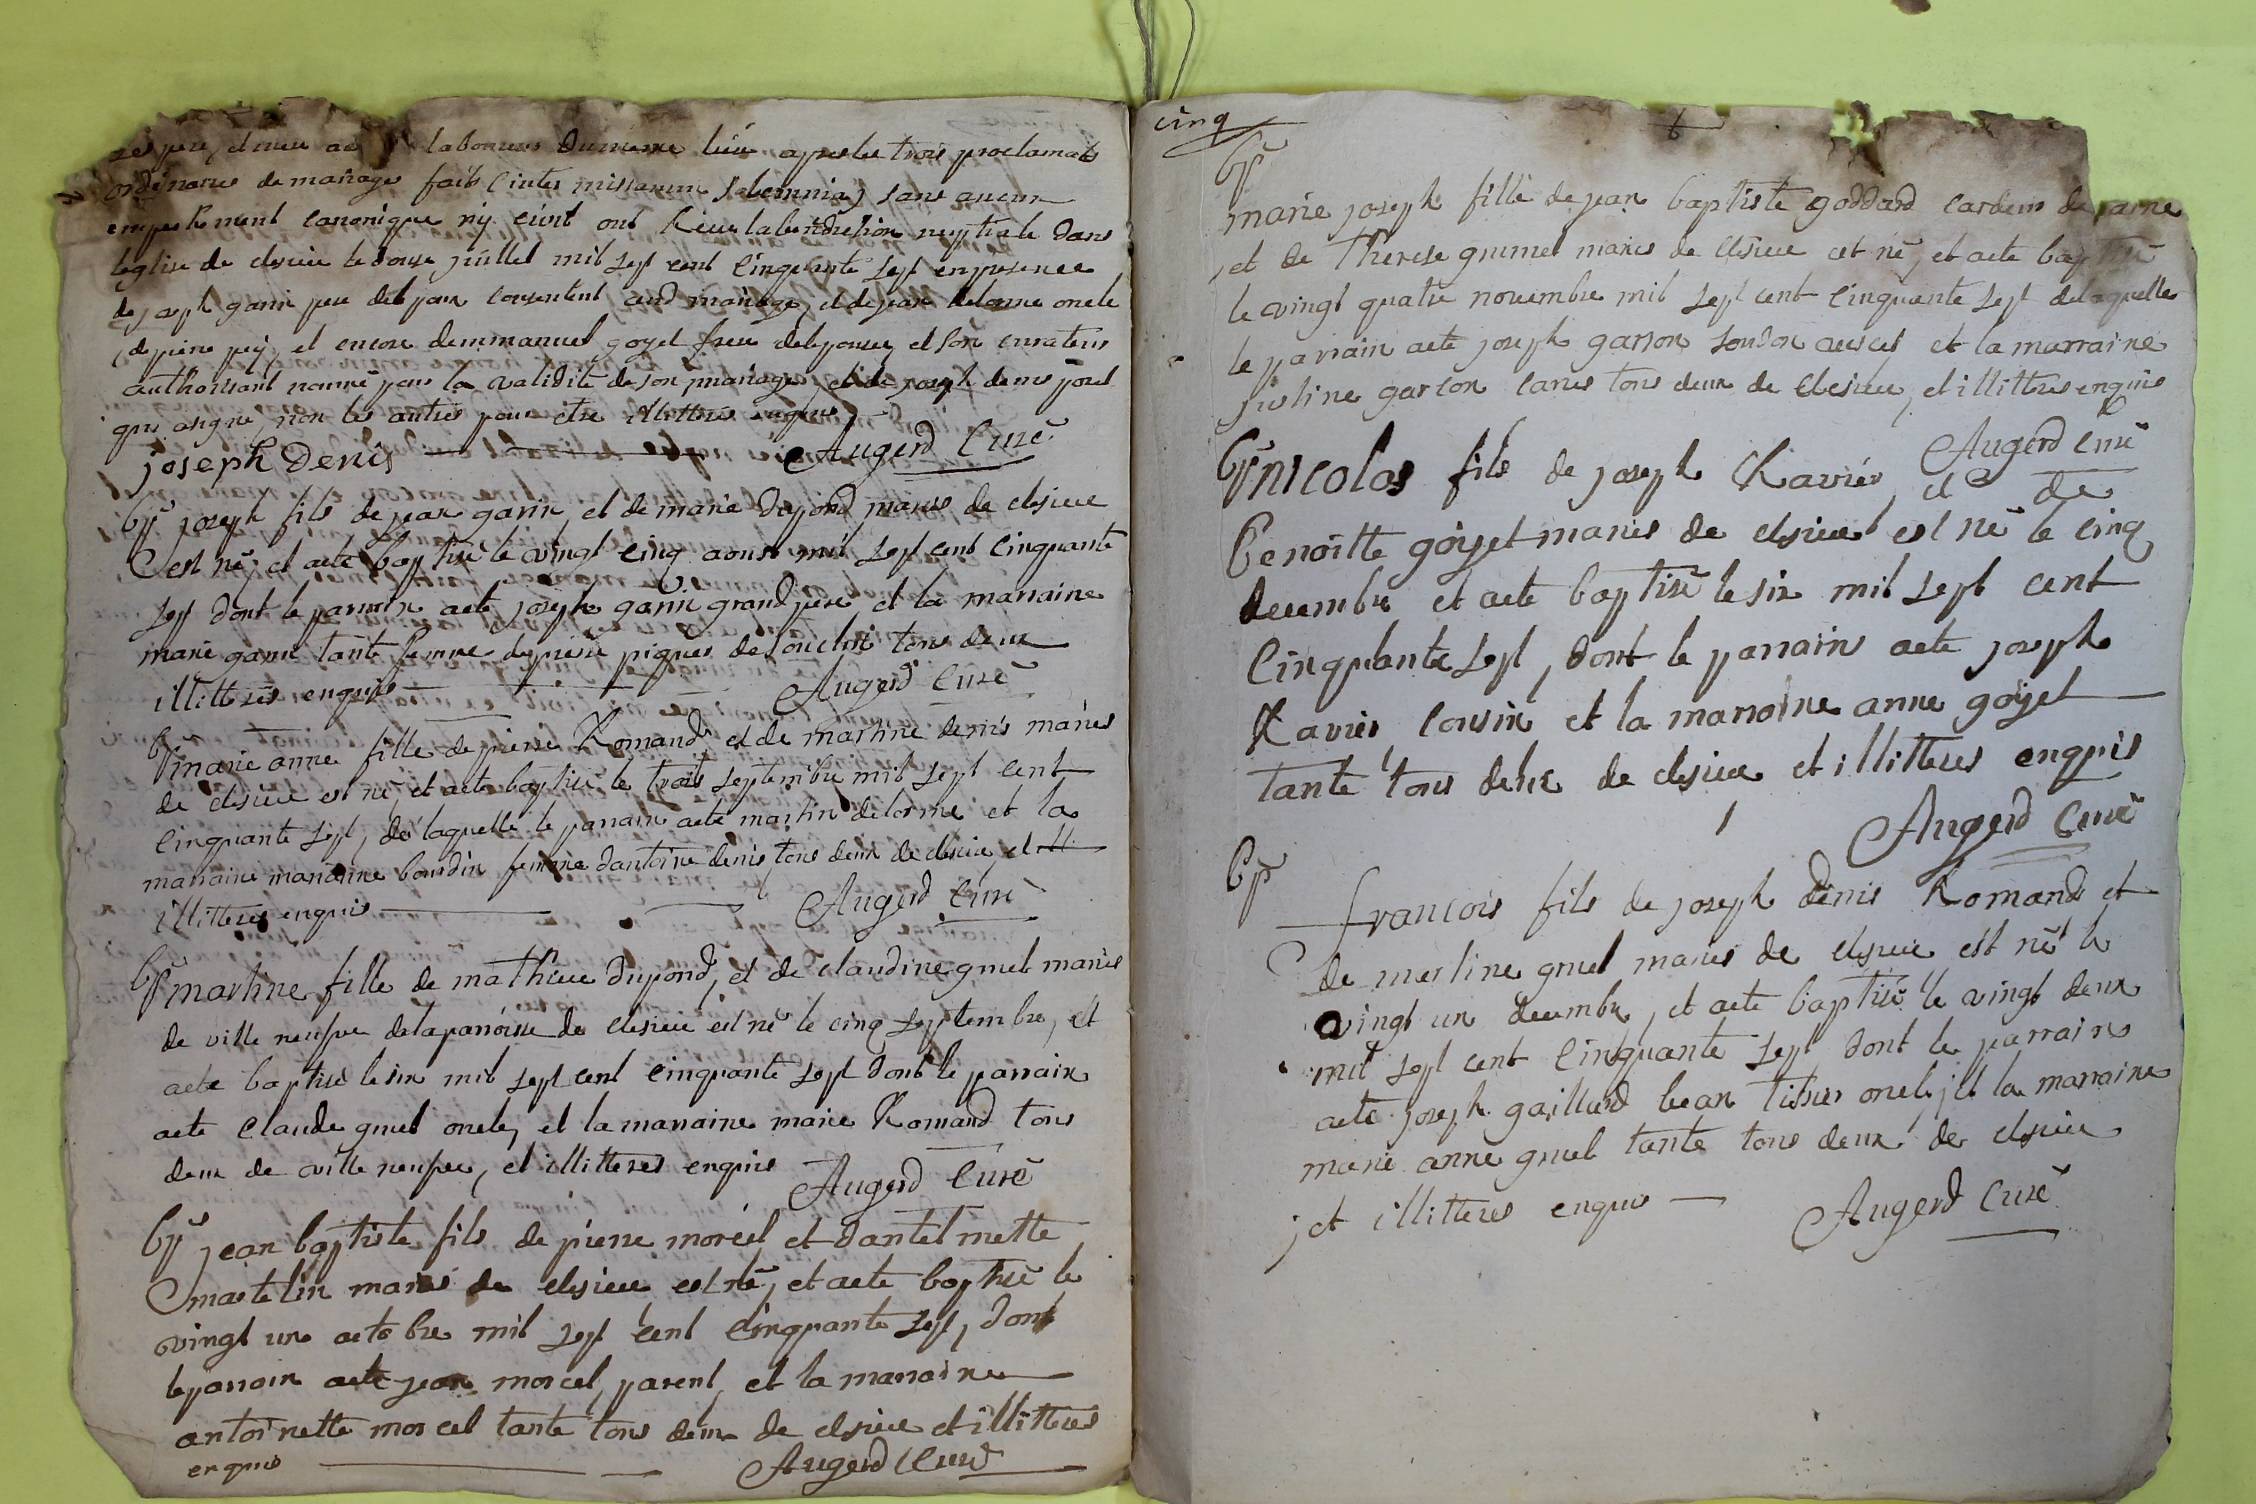 pere, et mere laboureurs du meme lieu apres les trois proclamats
ordinaires de mariage faits (inter missarum solemnia) sans aucun
empechement canonique n'y civil ont Recu la benediction nuptiale dans
leglise de clesieu le douse juillet mil sept cent cinquante sept en presence
de joseph garin pere de lepoux consentent aud mariage, et de jean delorme oncle
de piere pey, et encore demmanuel goyet frere delepouse, et son curateur
authorisant nommé pour la validité de son mariage, et de joseph denis
qui a signé, non les autres pour etre illitteres enquis
joseph Denis Augerd Curé
Bp joseph fils de jean garin, et de marie Dupond mariés de clesieu
est né, et a eté baptisé le vingt cinq aoust mil sept cent cinquante
sept dont le parrain a eté joseph garin grand pere, et la marraine
marie garin tante femme de piere de tous deux
illitteres enquis Augerd Curé
Bp marie anne fille de pierre Romand, et de martine denis mariés
de clesieu est né, et a eté baptisé le trois septembre mil sept cent
cinquante sept, de laquelle le parrain a eté martin delorme et la
marraine marianne bourdin femme dantoine denis, tous deux de clesieu et
illitteres enquis Augerd Curé
Bp martine fille de mathieu Dupond, et de claudine gruel mariés
de ville neufve de la parroisse de clesieu est né le cinq septembre, et
a eté baptisé le six mil sept cent cinquante sept dont le parrain
a eté claude gruel oncle, et la marraine marie Romand tous
deux de ville neufve, et illitteres enquis Augerd Curé
Bp jean baptiste fils de pierre morcel et
martelin mariés de clesieu est né, et a eté baptisé le
vingt un octobre mil sept cent cinquante sept, dont
le parrain a eté jean morcel, parent, et la marraine
antoinette morcel tante tous deux de clesieu et illitteres
enquis Augerd Curé
cinq
6
Bp
marie joseph fille de jean baptiste goddard
et de Therese mariés de clesieu est né, et a eté baptisé
le vingt quatre novembre mil sept cent cinquante sept de laquelle
le parrain a eté joseph garson et la marraine
justine garçon tous deux de clesieu, et illitteres enquis
Augerd Curé
Bp nicolas fils de joseph Ravier, et de
Benoitte goyet mariés de clesieu est né le cinq
decembre et a eté baptisé le six mil sept cent
cinquante sept, dont le parrain a eté joseph
Ravier cousin et la marraine anne goyet
tante tous deux de clesieu et illitteres enquis
Augerd Curé
Bp
francois fils de joseph denis Romand et
de martine gruel mariés de clesieu est né le
vingt un decembre, et a eté baptisé le vingt deux
mil sept cent cinquante sept dont le parrain
a eté joseph gaillard oncle, et la marraine
marie anne gruel tante tous deux de clesieu
et illitteres enquis Augerd Curé